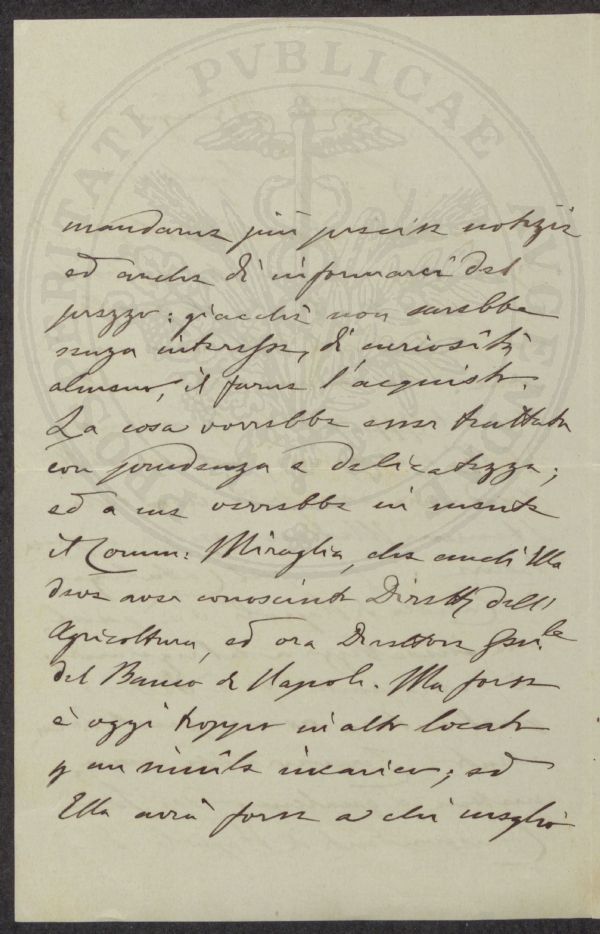 PROSPERITATI PVBLICAE AVGENDAE
mandarne più precise notizie
ed anche di informarci del
prezzo: giacchè non sarebbe
senza interesse, di curiosità
almeno, il farne l'acquisto.
La cosa vorrebbe esser trattata
con prudenza e delicatezza;
ed a me verrebbe in mente
il Comm: Miraglia, che anch'Ella
deve aver conosciuto Dirett. dell'
Agricoltura, ed ora Direttore Gen.le
del Banco di Napoli. Ma forse
è oggi troppo in alto locato
p un simile incarico; ed
Ella avrà forse a chi meglio